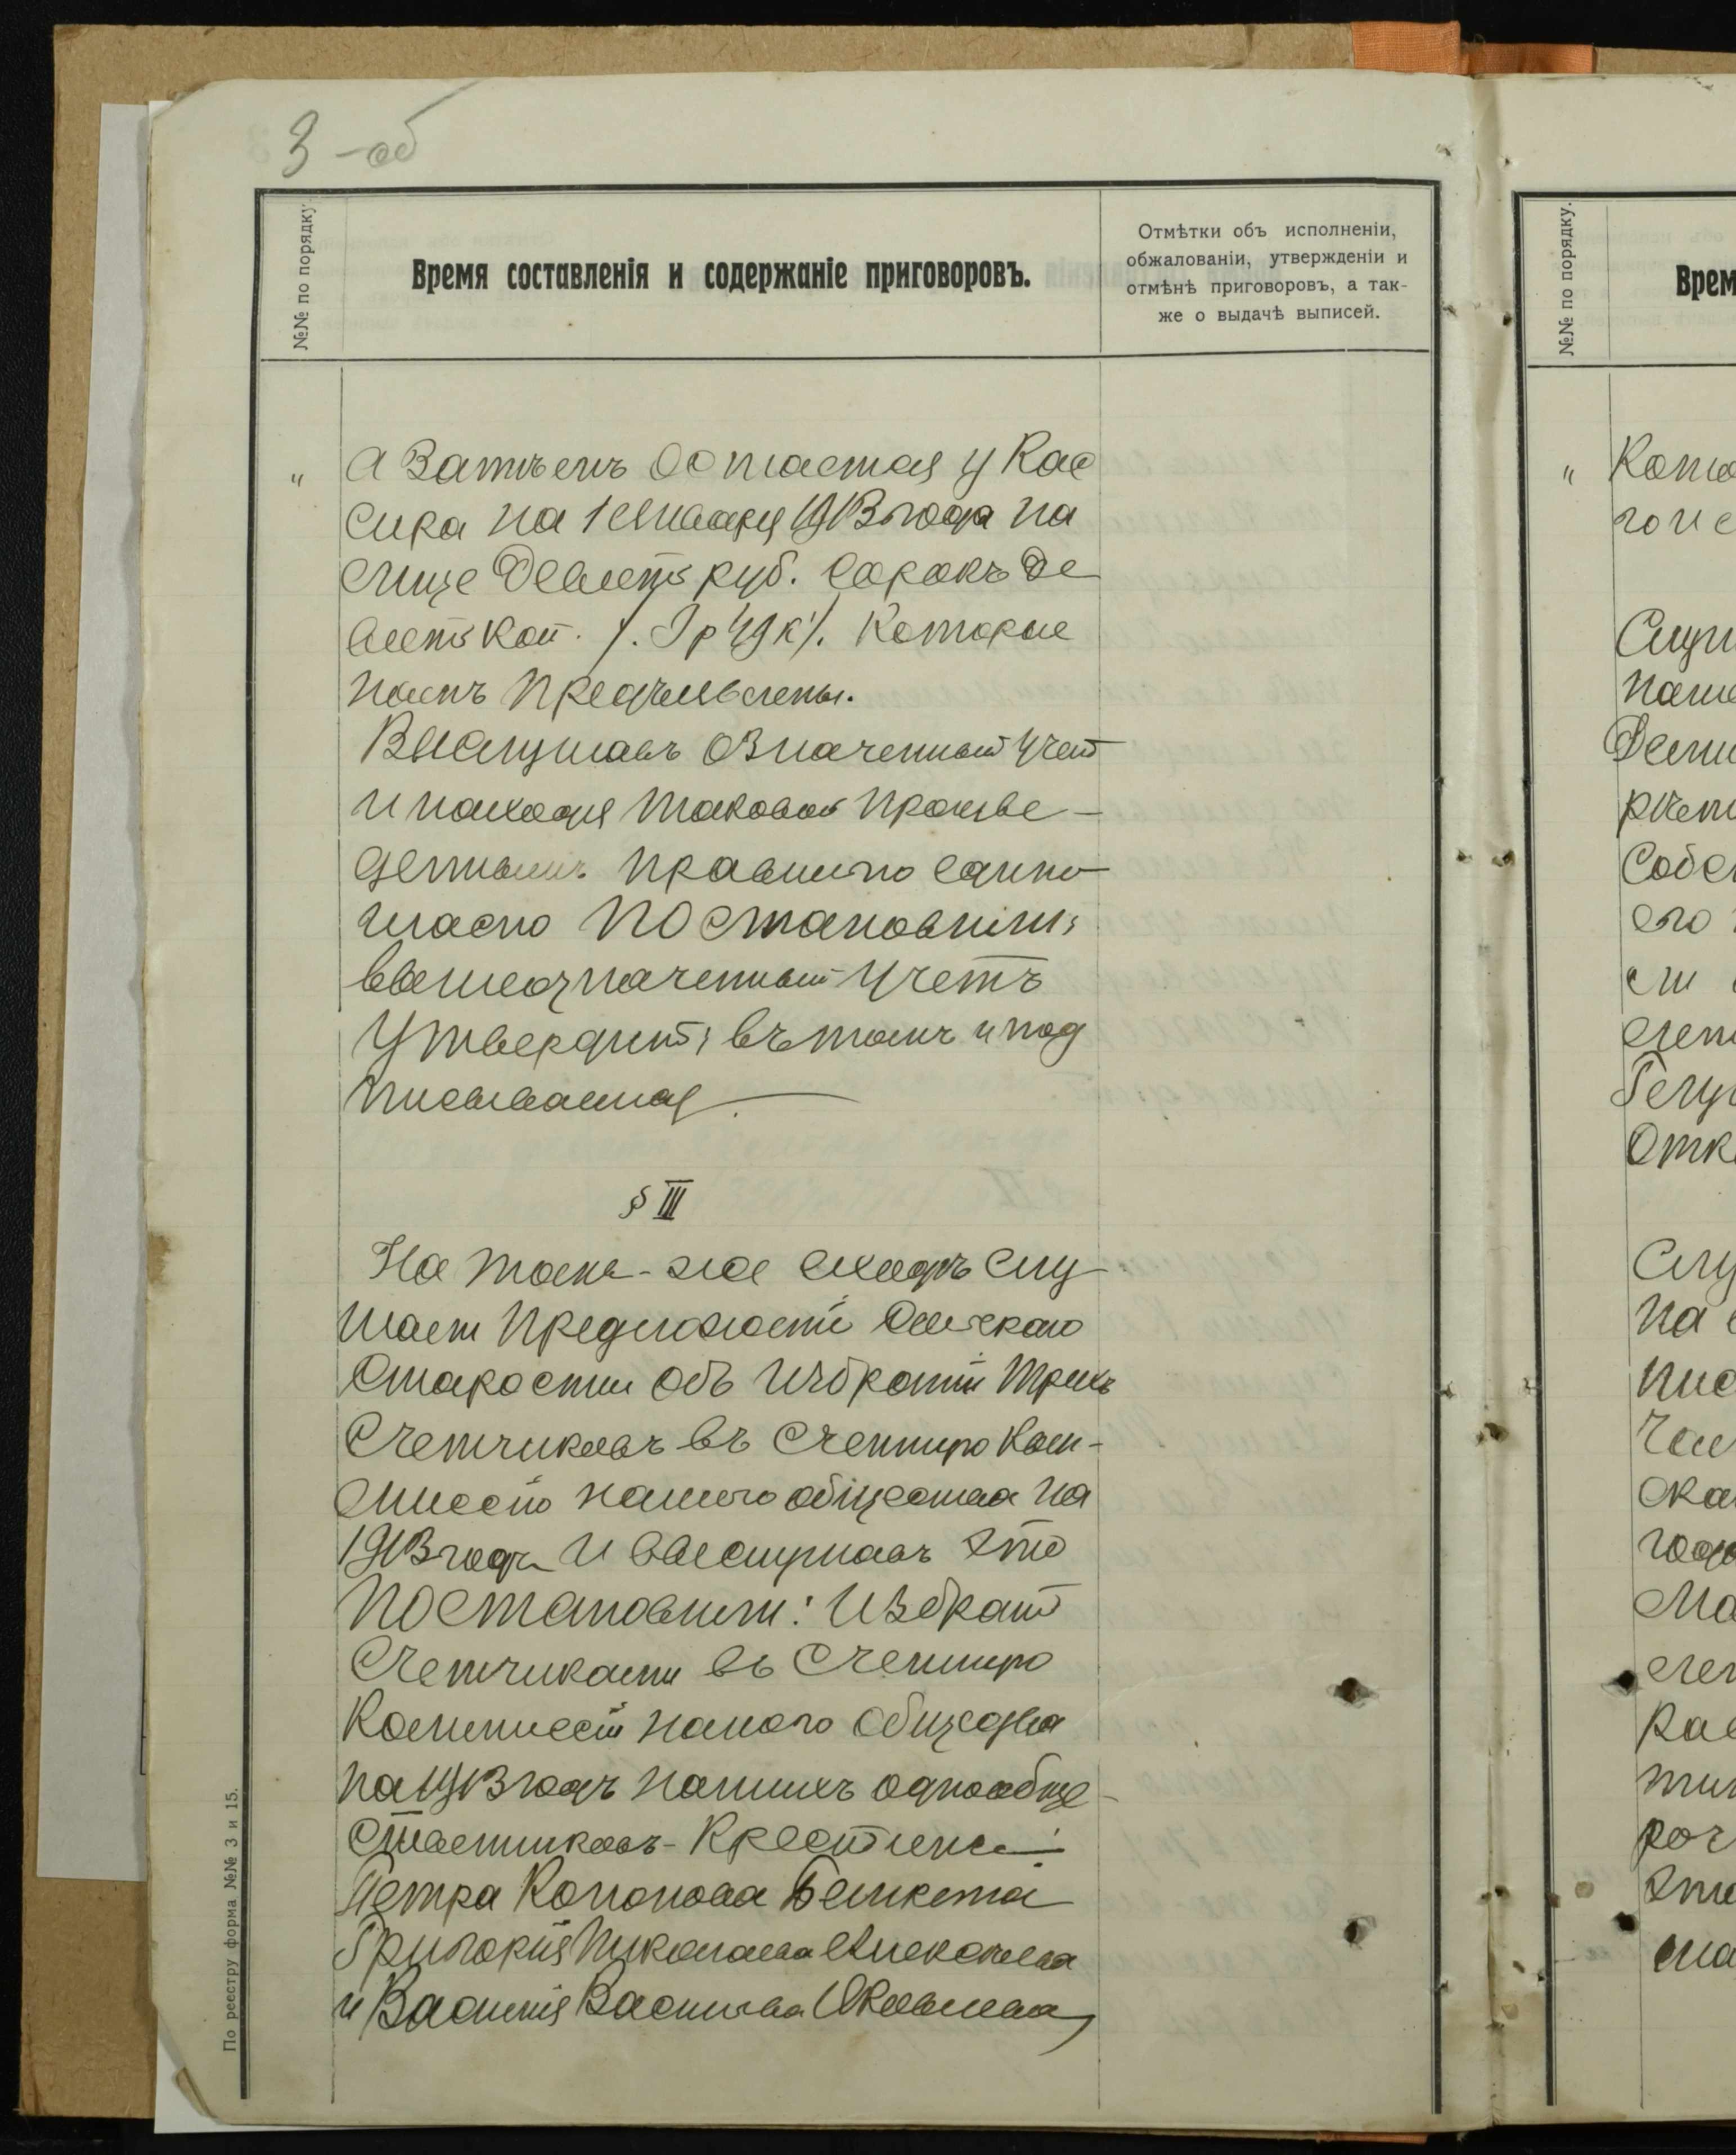 3-об
№№ по порядку.
Время составленія и содержаніе приговоровъ.
Отмѣтки объ исполненіи,
обжалованіи, утвержденіи и
отмѣнѣ приговоровъ, а так-
же о выдачѣ выписей.
" А Затѣмъ Осталось у Кас
сира на 1 Января 1913 года на
лице Девять руб. сорокъ де
вять коп. /. 9 р 49 к /. Которые
намъ предъявлены.
Выслушавъ означенный учет
и находя таковой произве-
деннымъ правильно едино
гласно Постановили:
вышеозначенный учетъ
Утвердить; въ томъ и под
писываемся
§ III
На томъ-же сходѣ слу
шали предложеніе Сельскаго
Старосты объ избраніи трехъ
Счетчиковъ въ Счетную Ком-
миссію нашего общества на
1913 годъ и выслушавъ это
Постановили: Избрать
Счетчиками въ Счетную
Коммиссію нашого общества
на 1913 годъ нашихъ однообще-
ственниковъ- Крестьянъ:
Петра Кононова
Григорія Николаева Алексѣева
и Василія Васильева Яковлева,
По реестру форма №№ 3 и 15.
№№ по порядку.
Врем
"